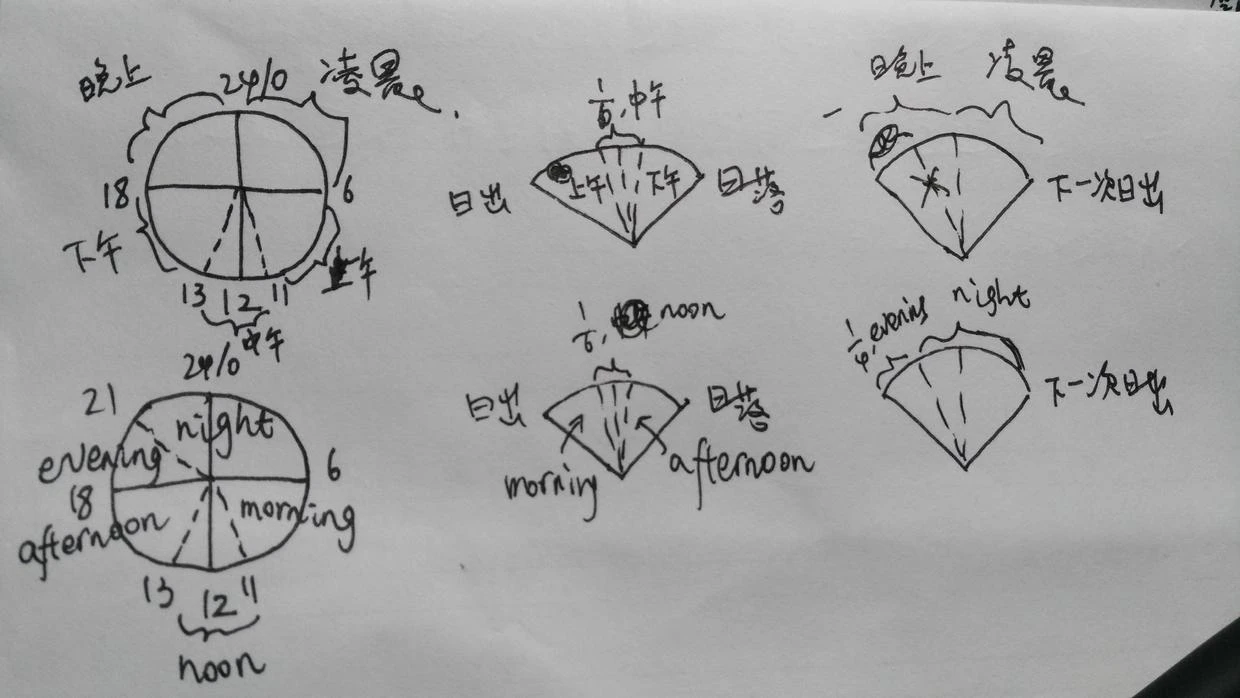 晚上 24/0 凌晨
18 6
下午 上午
13 12 11
中午
1/6,中午
日出 上午 下午 日落
晚上 凌晨
下一次日出
24/0
21 night
evening 6
18
afternoon morning
13 12 11
noon
1/6, noon
日出 日落
morning afternoon
1/4, evening night
下一次日出